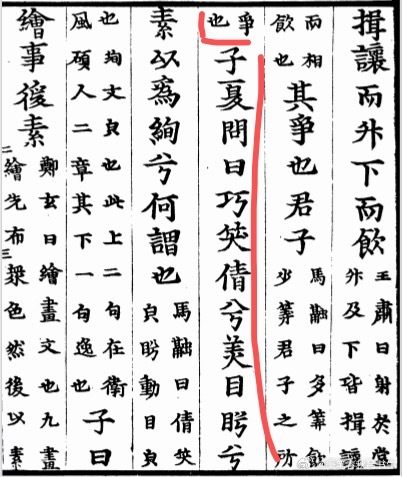 揖讓而升下而飲王肅曰射於堂升及下皆揖讓
而相飲也其爭也君子馬融曰多筭飲少筭君子之所
爭也子夏問曰巧笑倩兮美目盻兮
素以爲絢兮何謂也馬融曰倩笑皃盻動目皃
也絢文皃也此上二句在衛風碩人二章其下一句逸也子曰
繪事後素鄭玄曰繪畫文也凡畫繪先布衆色然後以素